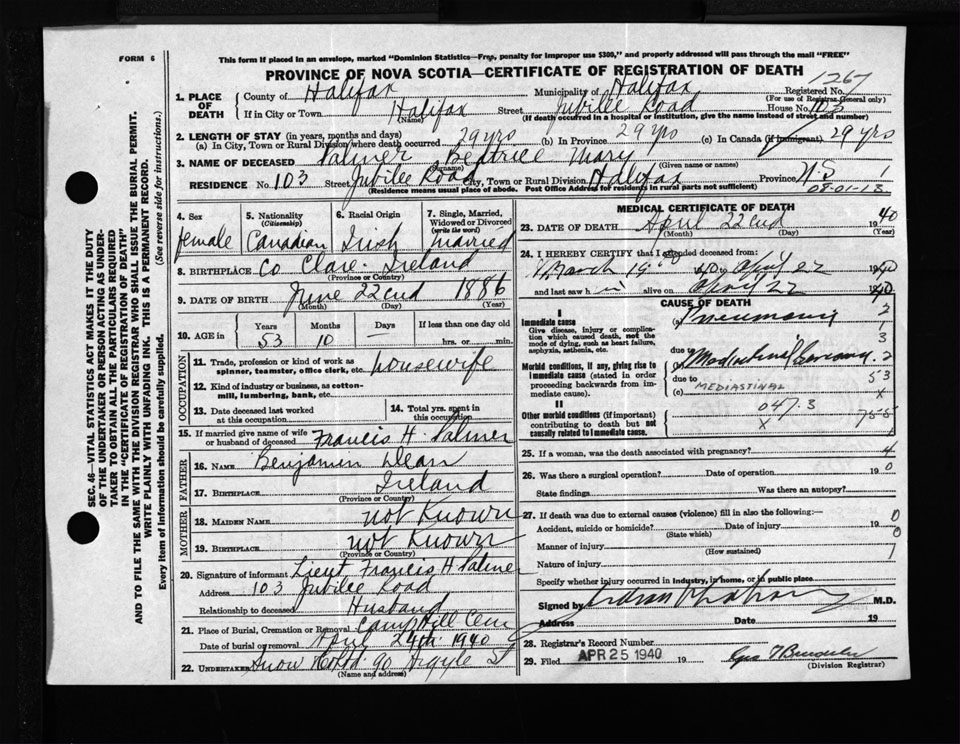 FORM 6
This form if placed in an envelope, marked "Dominion Statistics—Free, penalty for improper use $300," and properly addressed will pass through the mail "FREE"
PROVINCE OF NOVA SCOTIA—CERTIFICATE OF REGISTRATION OF DEATH
1267
1. PLACE OF DEATH
County of Halifax Municipality of Halifax Registered No.
(For use of Registrar General only)
If in City or Town Halifax Street Jubilee Road House No. 103
(Name) (If death occurred in a hospital or institution, give the name instead of street and number)
2. LENGTH OF STAY (in years, months and days)
(a) In City, Town or Rural Division where death occurred 29 yrs (b) In Province 29 yrs (c) In Canada (if immigrant) 29 yrs
3. NAME OF DECEASED Palmer Beatrice Mary
(Surname) (Given name or names)
RESIDENCE No. 103 Street Jubilee Road City, Town or Rural Division Halifax Province N.S 1
(Residence means usual place of abode. Post Office Address for residents in rural parts not sufficient)
08-01-13
4. Sex
female
5. Nationality
(Citizenship)
Canadian
6. Racial Origin
Irish
7. Single, Married, Widowed or Divorced
(write the word)
Married
8. BIRTHPLACE Co Clare. Ireland
(Province or Country)
9. DATE OF BIRTH June 22nd 1886
(Month) (Day) (Year)
10. AGE in Years Months Days If less than one day old
53 10 — hrs. or min.
OCCUPATION
11. Trade, profession or kind of work as spinner, teamster, office clerk, etc. housewife
12. Kind of industry or business, as cotton-mill, lumbering, bank, etc.
13. Date deceased last worked at this occupation
14. Total yrs. spent in this occupation
15. If married give name of wife or husband of deceased Francis H. Palmer
FATHER
16. NAME Benjamin Dean
17. BIRTHPLACE Ireland
(Province or Country)
MOTHER
18. MAIDEN NAME not Known
19. BIRTHPLACE not Known
(Province or Country)
20. Signature of informant Lieut Francis H Palmer
Address 103 Jubilee Road
Relationship to deceased Husband
21. Place of Burial, Cremation or Removal Camp Hill Cem
Date of burial or removal April 24th 1940
22. UNDERTAKER Snow & Co Ltd 90 Argyle St
(Name and address)
MEDICAL CERTIFICATE OF DEATH
23. DATE OF DEATH April 22nd 1940
(Month) (Day) (Year)
24. I HEREBY CERTIFY that I attended deceased from:
March 1940 to April 22 1940
and last saw h alive on April 22 1940
CAUSE OF DEATH
I
Immediate cause
Give disease, injury or complication which caused death, not the mode of dying, such as heart failure, asphyxia, asthenia, etc.
Pneumonia 2
3
Morbid conditions, if any, giving rise to immediate cause (stated in order proceeding backwards from immediate cause).
due to
Mediastinal 2
due to 53
(c) MEDIASTINAL x
II
047.3
Other morbid conditions (if important) contributing to death but not causally related to immediate cause.
x
25. If a woman, was the death associated with pregnancy? 4
26. Was there a surgical operation? Date of operation 19 0
State findings Was there an autopsy?
27. If death was due to external causes (violence) fill in also the following:—
0
Accident, suicide or homicide? Date of injury 19 0
(State which)
Manner of injury 7
(How sustained)
Nature of injury
Specify whether injury occurred in industry, in home, or in public place
Signed by M.D.
Address Date 19
28. Registrar's Record Number
29. Filed APR 25 1940 19
(Division Registrar)
SEC. 46—VITAL STATISTICS ACT MAKES IT THE DUTY
OF THE UNDERTAKER OR PERSON ACTING AS UNDER-
TAKER TO OBTAIN ALL THE PARTICULARS REQUIRED
IN THE "CERTIFICATE OF REGISTRATION OF DEATH"
AND TO FILE THE SAME WITH THE DIVISION REGISTRAR WHO SHALL ISSUE THE BURIAL PERMIT.
WRITE PLAINLY WITH UNFADING INK. THIS IS A PERMANENT RECORD.
Every item of information should be carefully supplied. (See reverse side for instructions.)